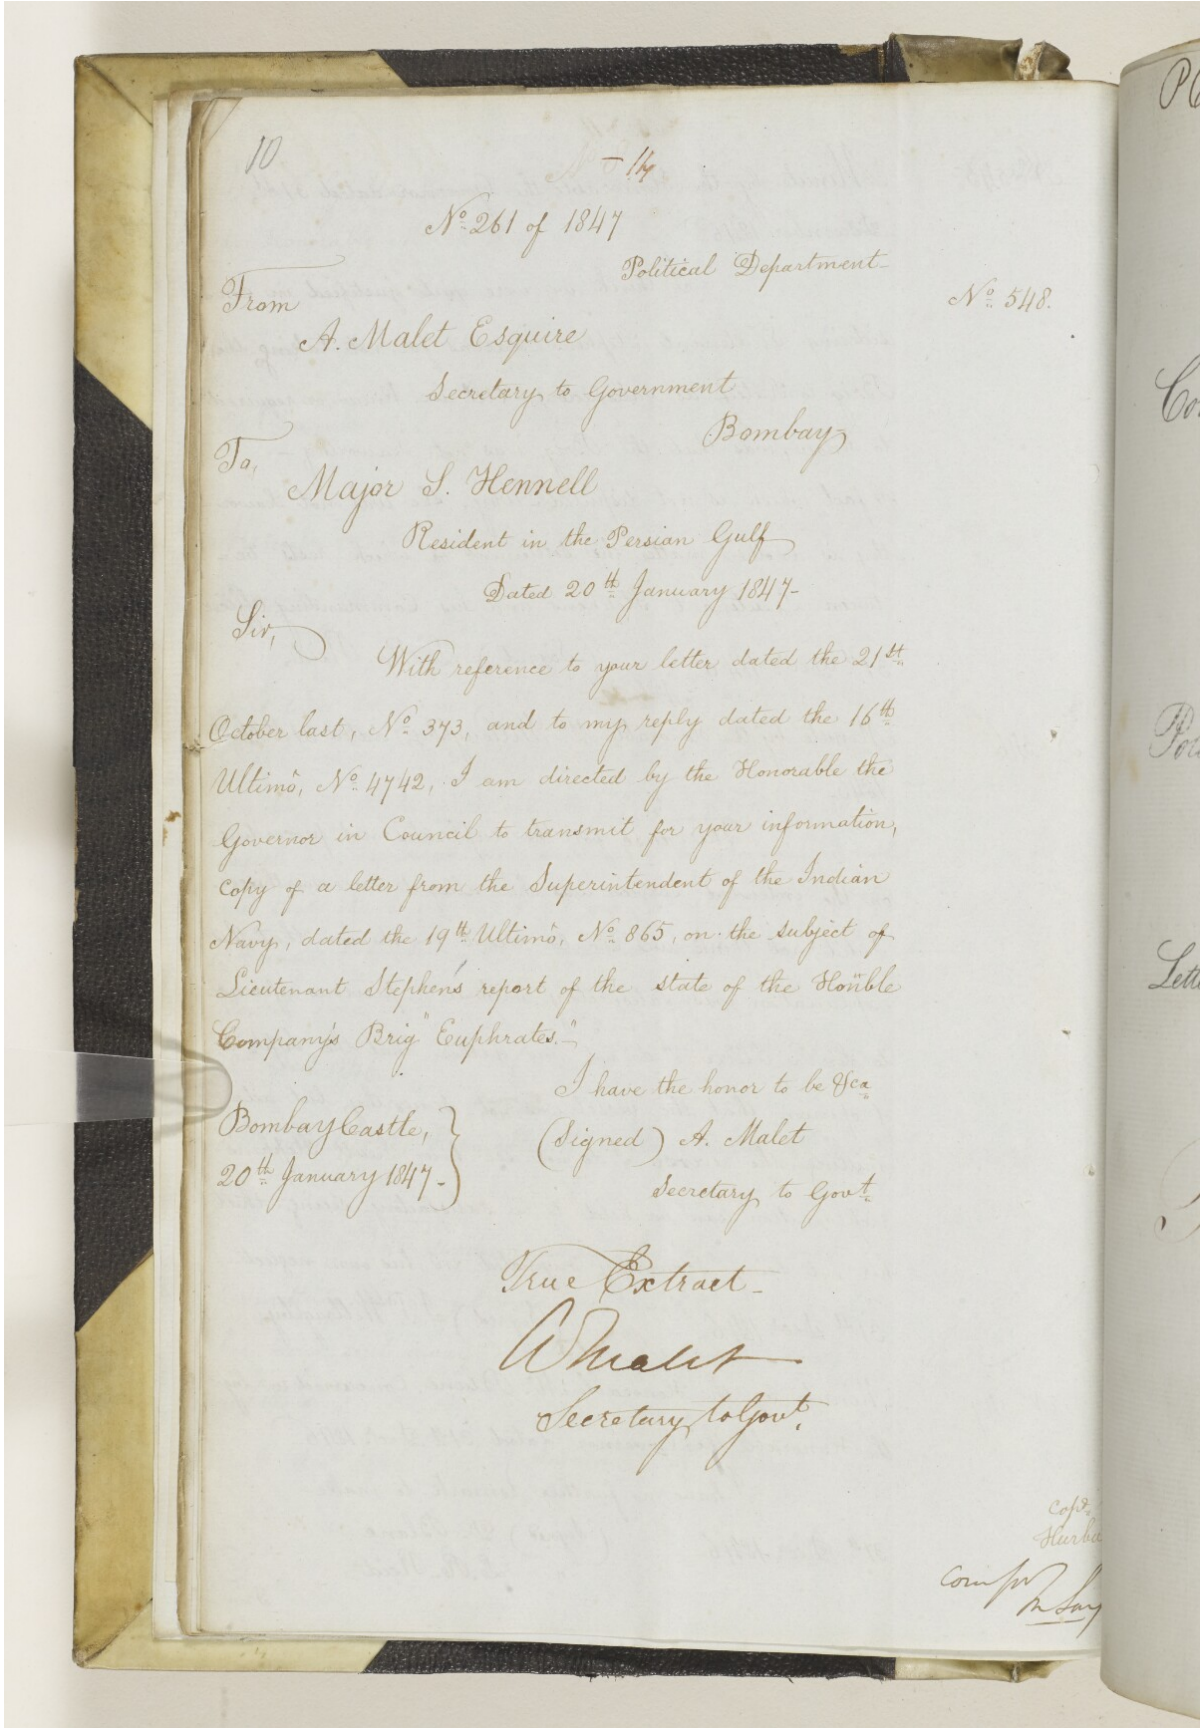 10
14
No. 261 of 1847
Political Department
No. 548.
From
A. Malet Esquire
Secretary to Government
Bombay
To,
Major S. Hennell
Resident in the Persian Gulf
Dated 20th January 1847-
Sir,
With reference to your letter dated the 21st
October last, No. 373, and to my reply dated the 16th
Ultimo, No. 4742, I am directed by the Honorable the
Governor in Council to transmit for your information,
copy of a letter from the Superintendent of the Indian
Navy, dated the 19th Ultimo, No. 865, on the subject of
Lieutenant Stephen's report of the state of the Hon'ble
Company's Brig "Euphrates."
I have the honor to be &ca
Bombay Castle,
(Signed) A. Malet
20th January 1847-
Secretary to Govt.
True Extract-
A Malet
Secretary to Govt.